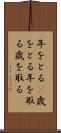 年をとる※歳
をとる年を取
る歳を取る